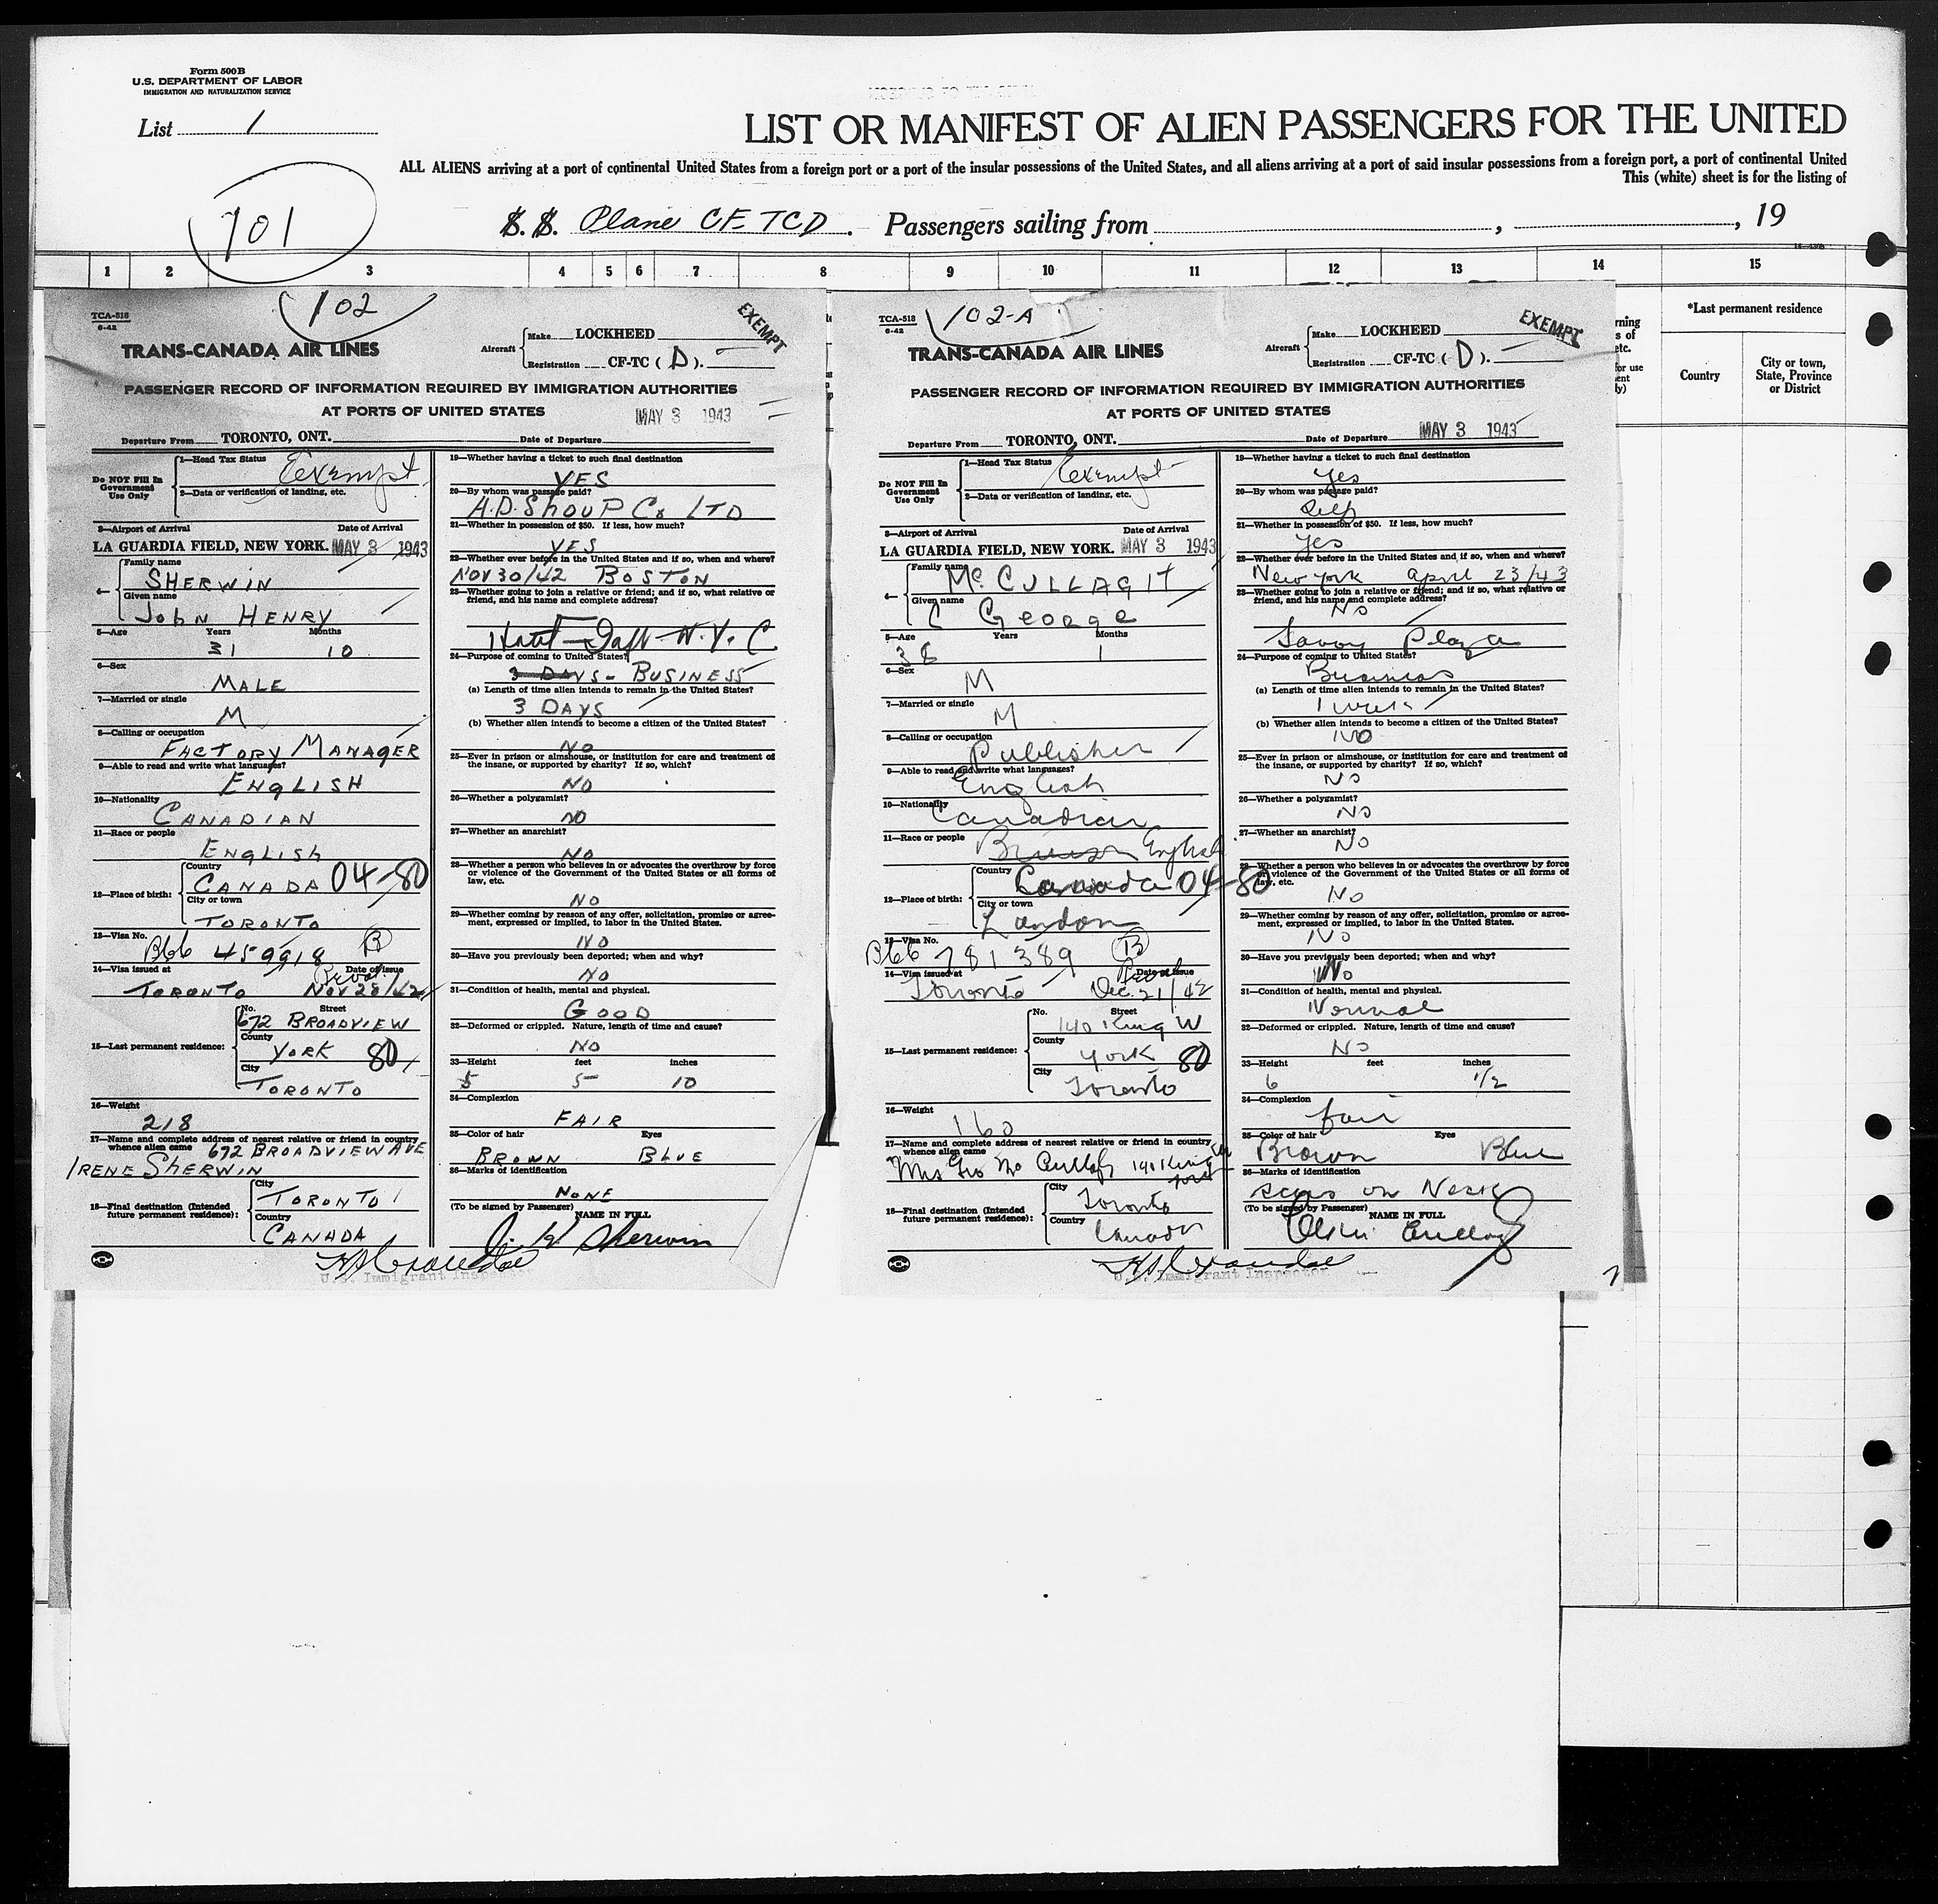 Form 500B
U.S. DEPARTMENT OF LABOR
IMMIGRATION AND NATURALIZATION SERVICE
List 1
LIST OR MANIFEST OF ALIEN PASSENGERS FOR THE UNITED
ALL ALIENS arriving at a port of continental United States from a foreign port or a port of the insular possessions of the United States, and all aliens arriving at a port of said insular possessions from a foreign port, a port of continental United
This (white) sheet is for the listing of
101
S. S. Plane CF-TCD. Passengers sailing from , , 19
1 2 3 4 5 6 7 8 9 10 11 12 13 14 15
*Last permanent residence
Country
City or town, State, Province or District
TCA-518
6-42
102
EXEMPT
TRANS-CANADA AIR LINES
Aircraft
Make LOCKHEED
Registration CF-TC (D).
PASSENGER RECORD OF INFORMATION REQUIRED BY IMMIGRATION AUTHORITIES
AT PORTS OF UNITED STATES MAY 3 1943
Departure From TORONTO, ONT. Date of Departure
Do NOT Fill In Government Use Only
1—Head Tax Status Exempt
2—Data or verification of landing, etc.
3—Airport of Arrival Date of Arrival
LA GUARDIA FIELD, NEW YORK. MAY 3 1943
4—
Family name
SHERWIN
Given name
JOHN HENRY
5—Age Years Months
31 10
6—Sex
MALE
7—Married or single
M
8—Calling or occupation
FACTORY MANAGER
9—Able to read and write what languages?
ENGLISH
10—Nationality
CANADIAN
11—Race or people
ENGLISH
12—Place of birth:
Country
CANADA 04-80
City or town
TORONTO
13—Visa No.
B66 459918 B
14—Visa issued at Date of issue
TORONTO NOV 28/42
15—Last permanent residence:
No. Street
672 BROADVIEW
County
YORK 80
City
TORONTO
16—Weight
218
17—Name and complete address of nearest relative or friend in country whence alien came 672 BROADVIEW AVE
IRENE SHERWIN
18—Final destination (Intended future permanent residence):
City
TORONTO
Country
CANADA
19—Whether having a ticket to such final destination
YES
20—By whom was passage paid?
A.D. SHOUP Co LTD
21—Whether in possession of $50. If less, how much?
YES
22—Whether ever before in the United States and if so, when and where?
NOV 30/42 BOSTON
23—Whether going to join a relative or friend; and if so, what relative or friend, and his name and complete address?
N.Y.C.
24—Purpose of coming to United States?
3 DAYS - BUSINESS
(a) Length of time alien intends to remain in the United States?
3 DAYS
(b) Whether alien intends to become a citizen of the United States?
NO
25—Ever in prison or almshouse, or institution for care and treatment of the insane, or supported by charity? If so, which?
NO
26—Whether a polygamist?
NO
27—Whether an anarchist?
NO
28—Whether a person who believes in or advocates the overthrow by force or violence of the Government of the United States or all forms of law, etc.
NO
29—Whether coming by reason of any offer, solicitation, promise or agreement, expressed or implied, to labor in the United States.
NO
30—Have you previously been deported; when and why?
NO
31—Condition of health, mental and physical.
GOOD
32—Deformed or crippled. Nature, length of time and cause?
NO
33—Height feet inches
5 5 10
34—Complexion
FAIR
35—Color of hair Eyes
BROWN BLUE
36—Marks of identification
NONE
(To be signed by Passenger) NAME IN FULL
J. H. Sherwin
U.S. Immigrant Inspector
TCA-518
6-42
102-A
EXEMPT
TRANS-CANADA AIR LINES
Aircraft
Make LOCKHEED
Registration CF-TC (D).
PASSENGER RECORD OF INFORMATION REQUIRED BY IMMIGRATION AUTHORITIES
AT PORTS OF UNITED STATES
Departure From TORONTO, ONT. Date of Departure MAY 3 1943
Do NOT Fill In Government Use Only
1—Head Tax Status Exempt
2—Data or verification of landing, etc.
3—Airport of Arrival Date of Arrival
LA GUARDIA FIELD, NEW YORK. MAY 3 1943
4—
Family name
McCULLAGH
Given name
C George
5—Age Years Months
38 1
6—Sex
M
7—Married or single
M
8—Calling or occupation
Publisher
9—Able to read and write what languages?
English
10—Nationality
Canadian
11—Race or people
English
12—Place of birth:
Country
Canada 04-80
City or town
London
13—Visa No.
B66 781389 B
14—Visa issued at Date of issue
Toronto Dec. 21/42
15—Last permanent residence:
No. Street
140 King W
County
York 80
City
Toronto
16—Weight
160
17—Name and complete address of nearest relative or friend in country whence alien came
Mrs Geo McCullagh 140 King
18—Final destination (Intended future permanent residence):
City
Toronto
Country
Canada
19—Whether having a ticket to such final destination
Yes
20—By whom was passage paid?
Self
21—Whether in possession of $50. If less, how much?
Yes
22—Whether ever before in the United States and if so, when and where?
New York April 23/43
23—Whether going to join a relative or friend; and if so, what relative or friend, and his name and complete address?
No
Savoy Plaza
24—Purpose of coming to United States?
Business
(a) Length of time alien intends to remain in the United States?
1 week
(b) Whether alien intends to become a citizen of the United States?
No
25—Ever in prison or almshouse, or institution for care and treatment of the insane, or supported by charity? If so, which?
No
26—Whether a polygamist?
No
27—Whether an anarchist?
No
28—Whether a person who believes in or advocates the overthrow by force or violence of the Government of the United States or all forms of law, etc.
No
29—Whether coming by reason of any offer, solicitation, promise or agreement, expressed or implied, to labor in the United States.
No
30—Have you previously been deported; when and why?
No
31—Condition of health, mental and physical.
Normal
32—Deformed or crippled. Nature, length of time and cause?
No
33—Height feet inches
6 1/2
34—Complexion
fair
35—Color of hair Eyes
Brown Blue
36—Marks of identification
scars on Neck
(To be signed by Passenger) NAME IN FULL
U.S. Immigrant Inspector